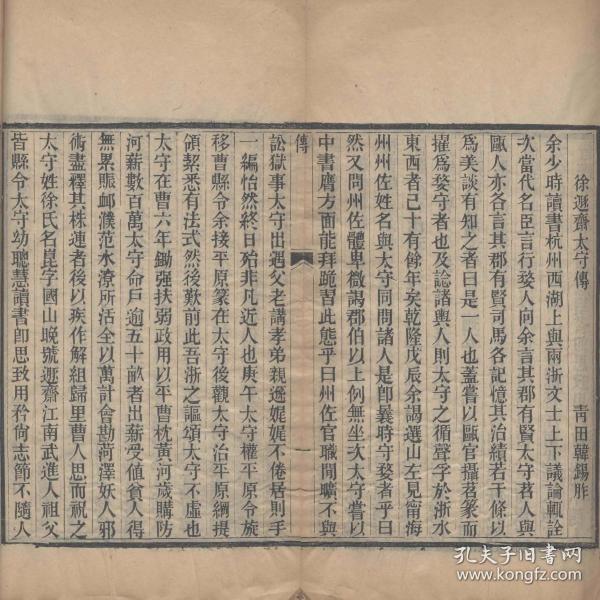 徐遯齋太守傳
青田韓錫胙
余少時讀書杭州西湖上與兩浙文士上下議論輒詮
次當代名臣言行婺人向余言其郡有賢太守茗人與
甌人亦各言其郡有賢司馬各記憶其治績若干條以
爲美談有知之者曰是一人也蓋嘗以甌官攝茗篆而
擢爲婺守者也及諗諸輿人則太守之循聲孚於浙水
東西者已十有餘年矣乾隆戊辰余謁選山左見簡海
州州佐姓名與太守同問諸人是卽曩時守婺者乎曰
然又問州佐體卑微謁郡伯以上例無坐次太守嘗以
中書膺方面能拜跪習此態乎曰州佐官職閒曠不與
傳
一
訟獄事太守出遇父老講孝弟親遜娓娓不倦居則手
一編怡然終日殆非凡近人也庚午太守權平原令旋
移曹縣令余接平原篆在太守後觀太守治平原綱提
領挈悉有法式然後歎前此吾浙之謳頌太守不虛也
太守在曹六年鋤強扶弱政用以平曹枕黃河歲購防
河薪數百萬太守命戶逾五十畝者出薪受値貧人得
無累賑邮濮范水潦所活全以萬計會勘菏澤妖人邪
術盡釋其株連者後以疾作解組歸里曹人思而祝之
太守姓徐氏名崑字國山晚號遯齋江南武進人祖父
皆縣令太守幼聰慧讀書卽思致用矜尙志節不隨人
孔夫子旧书网
www.kongfz.com